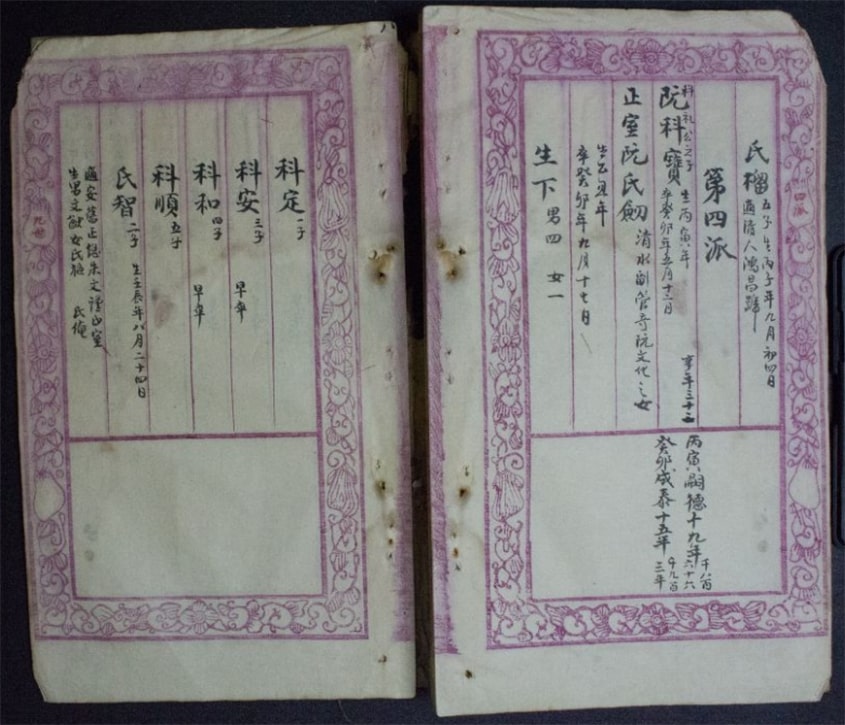 氏榴 五子 生丙子年九月初四日
適清人鴻昌號
第四派
科礼公之子
阮科寶 生丙寅年
卒癸卯年五月十三日
享年三十
正室阮氏劒
清水副管奇阮文化之女
年
卒癸卯年九月十七日
生下 男四 女一
丙寅嗣德十九年
千八百六十六
癸卯成泰十五年
千九百三年
科定 一子
科安 三子 早卒
科和 四子 早卒
科順 五子
氏智 二子 生壬辰年八月二十四日
適安舊正總朱文 正室
生男文 女氏 氏